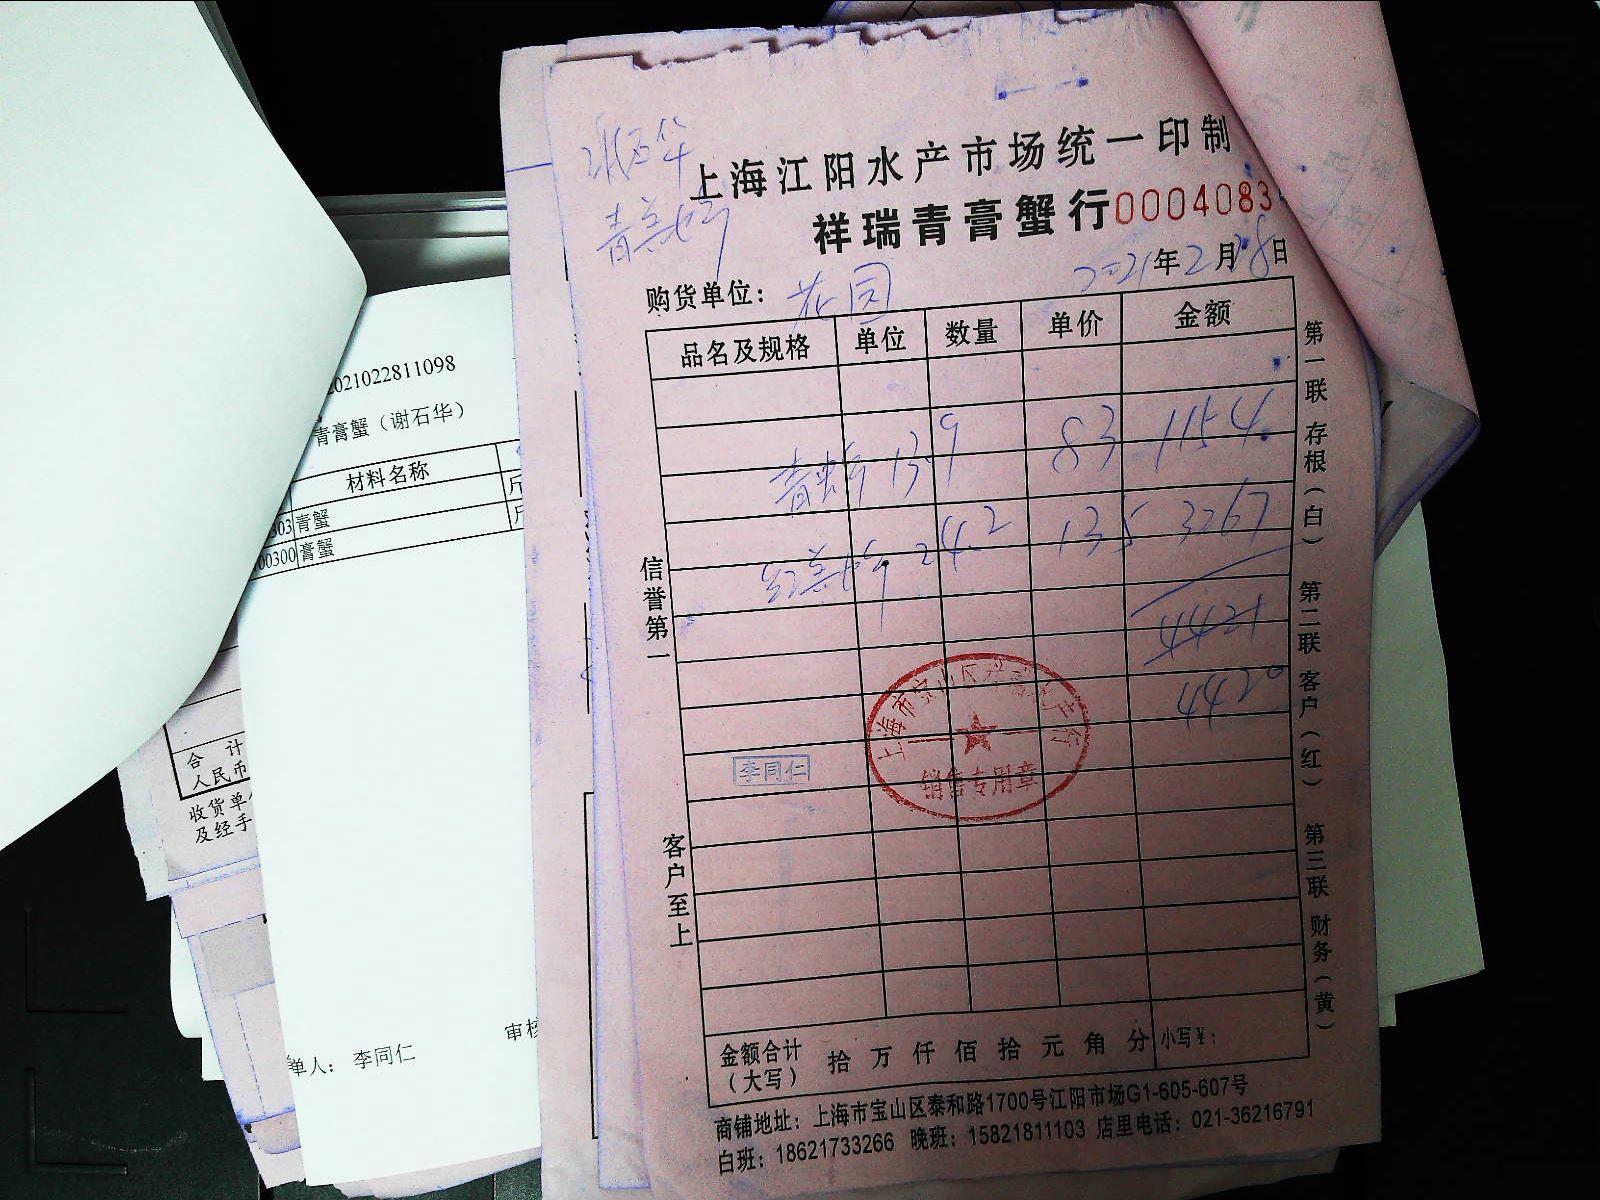 上海江阳水产市场统一印制
祥瑞青膏蟹行 0004083
2021年2月28日
购货单位：花园
品名及规格 单位 数量 单价 金额
青蟹 13.9 83 1154.
红膏蟹 24.2 135 3267
4421
4420
上海市宝山区
销售专用章
李同仁
信誉第一
客户至上
第一联 存根（白）
第二联 客户（红）
第三联 财务（黄）
金额合计（大写） 拾 万 仟 佰 拾 元 角 分 小写￥：
商铺地址：上海市宝山区泰和路1700号江阳市场G1-605-607号
白班：18621733266 晚班：15821811103 店里电话：021-36216791
2021022811098
青膏蟹（谢石华）
材料名称
303 青蟹 斤
00300 膏蟹
单人：李同仁
审核
合 计
人民币
收货单位
及经手